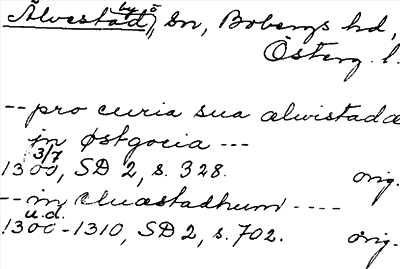 Älvestad, by o sn, Bobergs hd,
Österg. l.
-- pro curia sua alwistadæ
in østgocia ---
1300 3/7, SD 2, s. 328. orig.
-- in eluastadhum ----
1300 u.d. - 1310, SD 2, s. 702. orig.